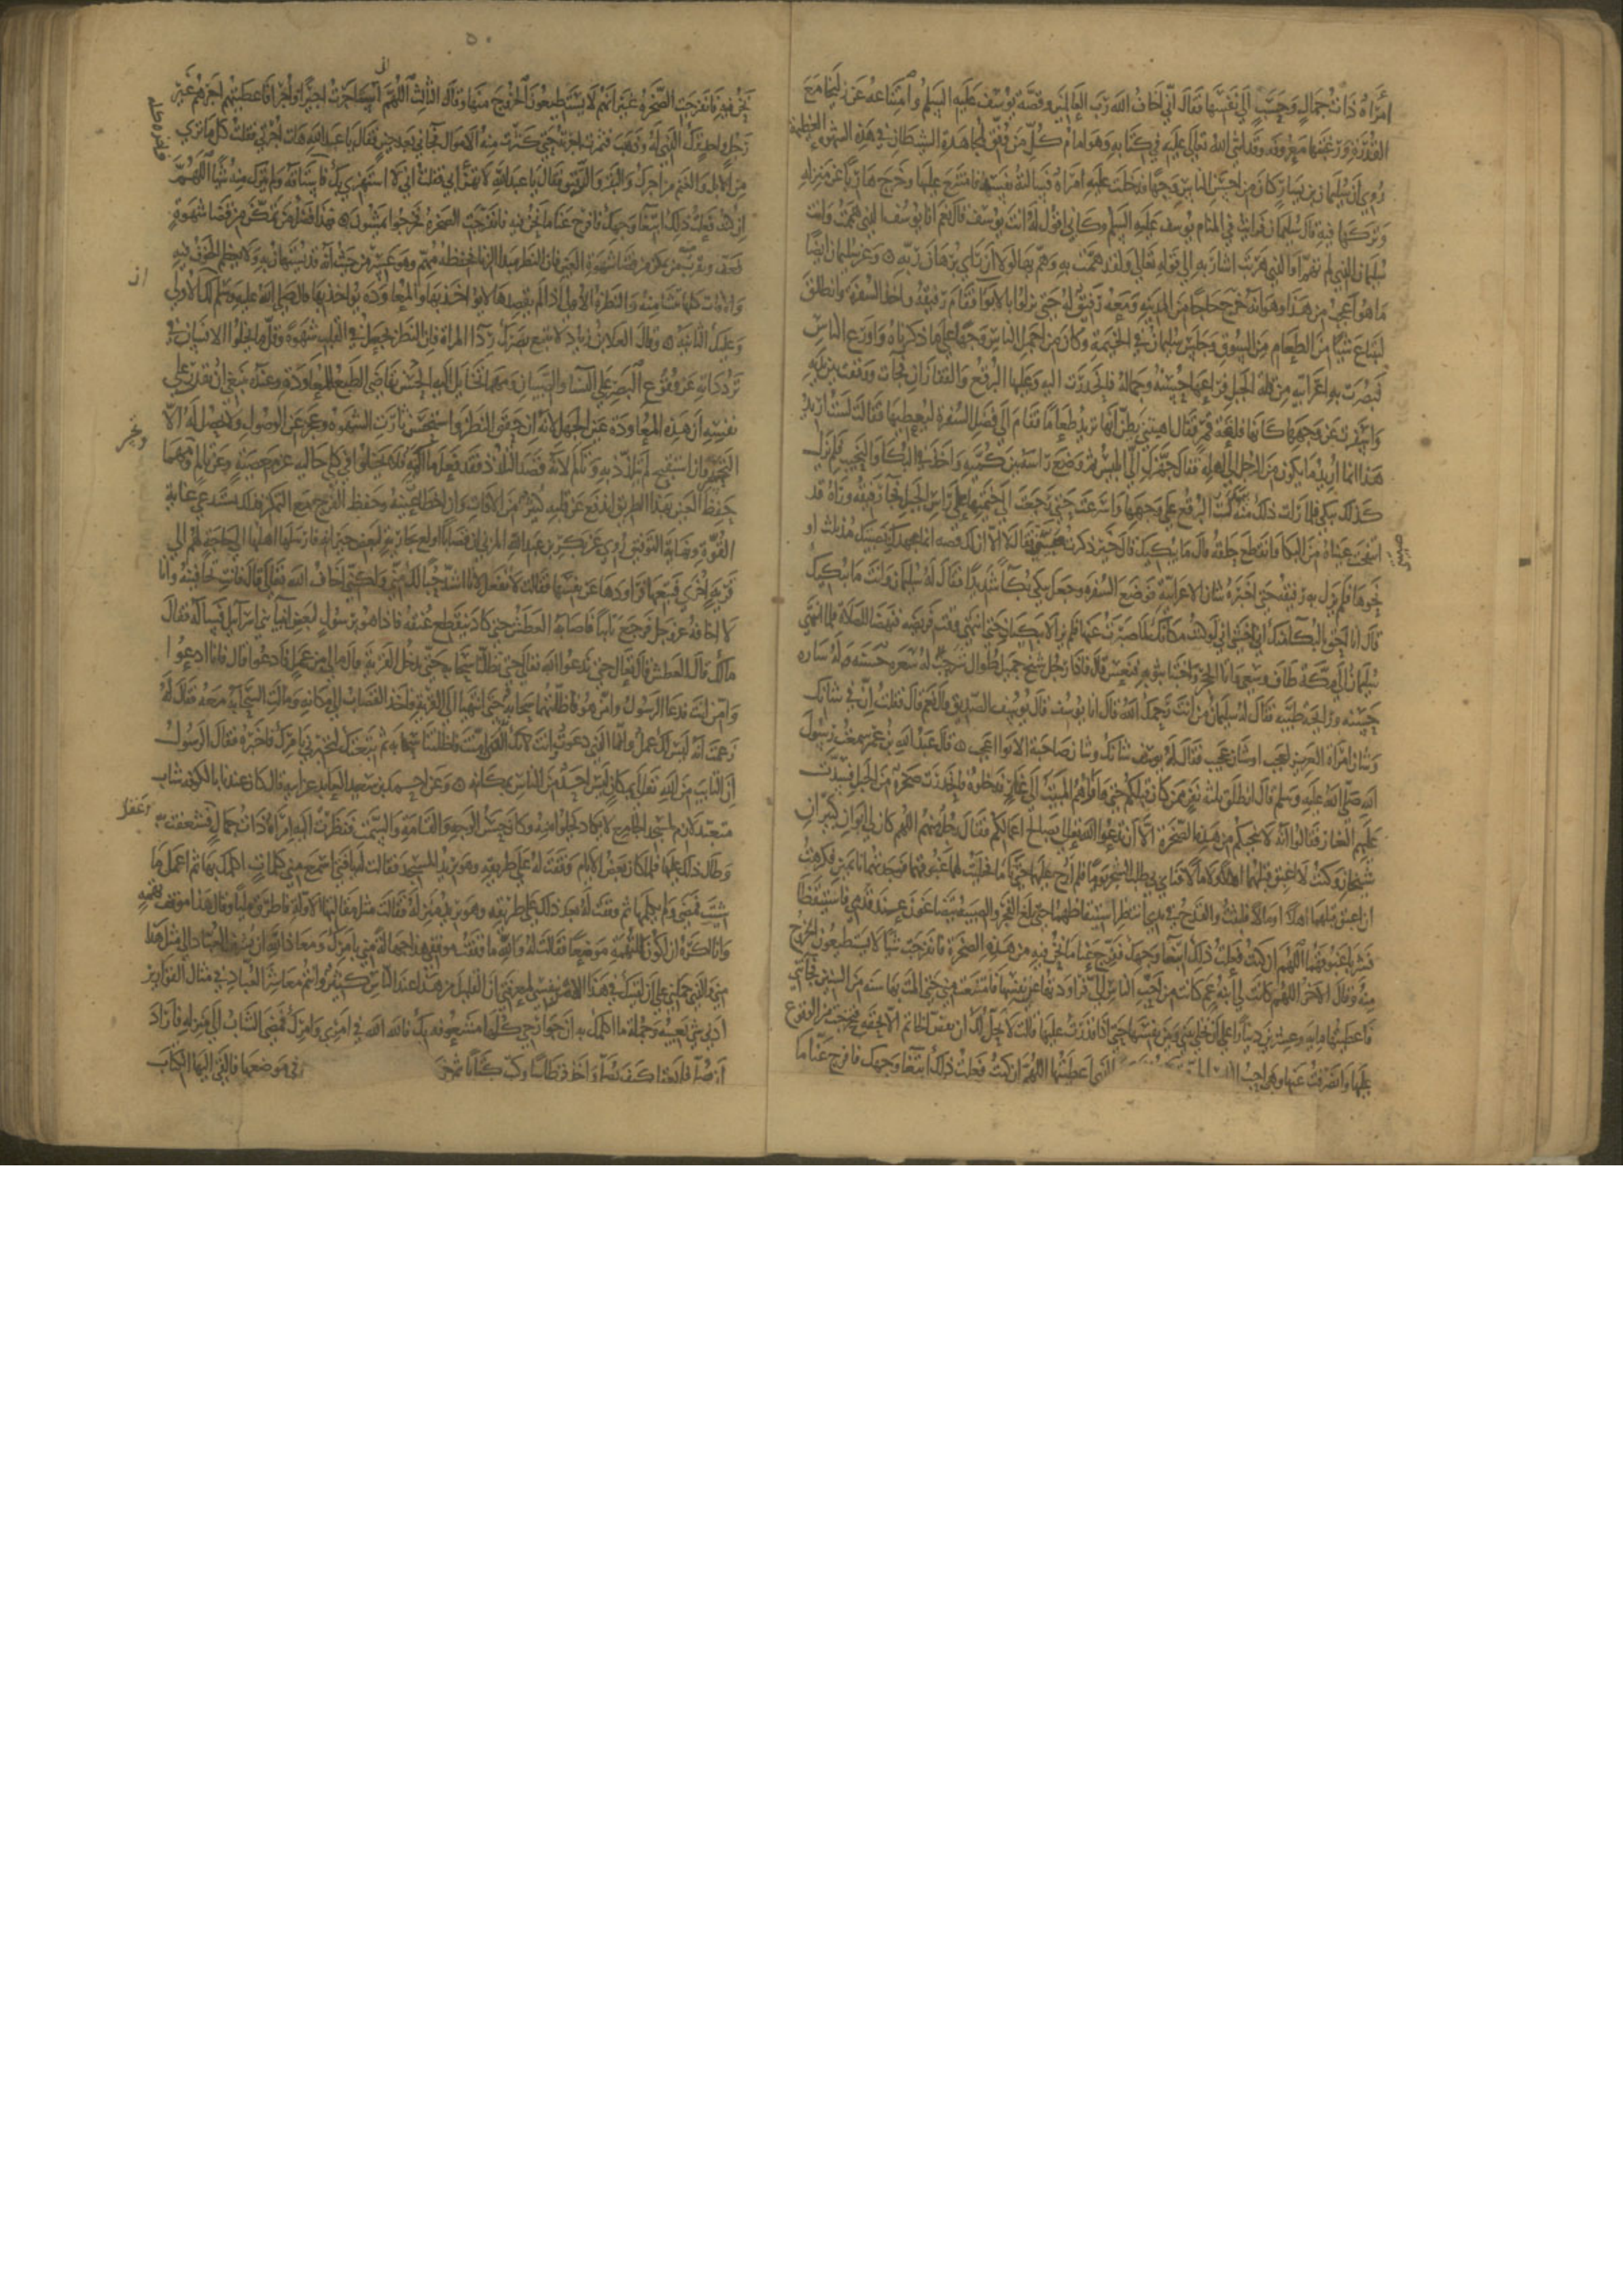 امرأة ذات جمال وحسب الى نفسها فقال انى اخاف الله رب العالمين وقصة يوسف عليه السلم وامتناعه عن زليخا مع
القدرة ورغبتها معروفة وقد اثنى الله تعالى عليه فى كتابه وهو امام كل من وفق لمجاهدة الشيطان فى هذه الشهوة العظيمة
روى ان سليمان بن يسار كان من احسن الناس وجها فدخلت عليه امراة فسالته نفسه فامتنع عليها وخرج هاربا عن منزله
وتركها فيه قال سليمان فرايت فى المنام يوسف عليه السلم وكانى اقول له انت يوسف قال نعم انا يوسف الذى هممت وانت
سليمان الذى لم تهم اشار به الى قوله تعالى ولقد همت به وهم بها لولا ان راى برهان ربه وعن سليمان ايضا
ما هو اعجب من هذا وهو انه خرج حاجا من المدينة ومعه رفيق له حتى نزلوا بالابوا فقام رفيقه واخذ السفرة وانطلق
ليبتاع شيا من الطعام من السوق وجلس سليمان فى الخيمة وكان من اجمل الناس وجها على ما ذكرناه واورع الناس
فبصرت به اعرابية من قلة الجبل فراعها حسنه وجماله فانحدرت اليه وعليها البرقع والقفازان فجات ووقفت بين يديه
واسفرت عن وجهها كانها فلقة قمر فقال اهنيتنى فظن انها تريد طعاما فقام الى فضل السفرة ليعطيها فقالت لست اريد
هذا انما اريد ما يكون من الرجل الى اهله فقال جهزك الى ابليس ثم وضع راسه بين كميه واخذ فى البكا والنحيب فلم يزل
كذلك يبكى فلما رات ذلك منه سدلت البرقع على وجهها واسرعت حتى رجعت الى خيمتها على راس الجبل فجا رفيقه وراه قد
انتفخت عيناه من البكا وانقطع حلقه قال ما يبكيك قال خير ذكرت صبيتى قال لا الا ان لك قصة انما عهدك بصبيتك منذ ثلث او
نحوها فلم يزل به رفيقه حتى اخبره شان الاعرابية فوضع السفرة وجعل يبكى بكآ شديدا فقال له سليمان وانت ما يبكيك
قال انا احق بالبكآ منك انى اخشى انى لو كنت مكانك لما صبرت عنها فلم يزالا يبكيان حتى انتهى
سليمان الى مكة طاف وسعى واتا الحجر واحتبا بثوبه فنعس قال فاذا رجل شيخ جميل طوال شرحب له شعرة حسنة وله شارة
حسنة ورايحة طيبة فقال له سليمان من انت رحمك الله قال انا يوسف قال يوسف الصديق قال نعم قال قلت ان فى شانك
وشان امراة العزيز لعجب او شان عجيب فقال له يوسف شانك وشان صاحبة الابوا اعجب قال عبد الله بن عمر سمعت رسول
الله صلى الله عليه وسلم قال انطلق ثلثة نفر ممن كان قبلكم حتى اواهم المبيت الى غار فدخلوه فانحدرت صخرة من الجبل فسدت
عليهم الغار فقالوا انه لا ينجيكم من هذه الصخرة الا ان تدعوا الله تعالى بصالح اعمالكم فقال رجل منهم اللهم كان لى ابوان كبيران
شيخان وكنت لا اغبق قبلهما اهلا ولا مالا فناى بى طلب الشجر يوما فلم ارح عليهما حتى ناما فحلبت لهما غبوقهما فوجدتهما نائمين فكرهت
ان اغبق قبلهما اهلا او مالا فلبثت والقدح فى يدى انتظر استيقاظهما حتى طلع الفجر والصبية يتضاغون عند قدمى فاستيقظا
فشربا غبوقهما اللهم ان كنت فعلت ذلك ابتغا وجهك ففرج عنا ما نحن فيه من هذه الصخرة فانفرجت شيا لا يستطيعون الخروج
منه وقال الاخر اللهم كانت لى ابنة عم كانت من احب الناس الى فراودتها عن نفسها فامتنعت منى حتى المت بها سنة من السنين فجاتنى
فاعطيتها مايه وعشرين دينارا على ان تخلى بينى وبين نفسها حتى اذا قدرت عليها قالت لا يحل لك ان تفض الخاتم الا بحقه فتحرجت من الوقوع
عليها وانصرفت عنها وهى احب الناس الذى اعطيتها اللهم ان كنت فعلت ذلك ابتغا وجهك فافرج عنا ما
صبيتى
٥٠
نحن فيه فانفرجت الصخرة غير انهم لا يستطيعون الخروج منها وقال الثالث اللهم انى استاجرت اجيرا او اجرا فاعطيتهم اجرهم غير
رجل واحد ترك الذى له وذهب فثمرت اجرته حتى كثرت منه الاموال فجانى بعد حين فقال يا عبد الله هات اجرتى فقلت كل ما ترى
من الابل والغنم من اجرك والبقر والرقيق فقال يا عبد الله لا تهزا بى فقلت انى لا استهزى بك فاستاقه ولم يترك منه شيا اللهم
ان كنت فعلت ذلك ابتغا وجهك فافرج عنا ما نحن فيه فانفرجت الصخرة فخرجوا يمشون فهذا فضل من تمكن من قضا شهوة
فعف ويقرب منه من تمكن من قضا شهوة العين فان النظر مبدا الزنا فحفظه مهم وهو عسير من حيث انه قد يستهان به ولا يعظم الخوف منه
والافات كلها تنشا منه والنظرة الاولى اذا لم يقصدها لا يواخذ بها والمعاودة يواخذ بها قال صلى الله عليه وسلم لك الاولى
وعليك الثانية وقال العلا بن زياد لا تتبع بصرك ردا المراة فان النظر يجعل فى القلب شهوة وقل ما يخلوا الانسان فى
ترداداته عن وقوع البصر على النسا والصبيان ومهما تخايل اليه الحسن تقاضى الطبع المعاودة وعنده ينبغى ان يقرر على
نفسه ان هذه المعاودة عين الجهل لانه ان حقق النظر واستحسن ثارت الشهوة وعجز عن الوصول ولا يحصل له الا
التحسر وان استقبح لم يتلذذ به وتالم لانه قصد التلذذ فقد فعل ما المه فلا يخلوا فى كلى حاليه عن معصية وعن تالم ومهما
حفظ العين بهذا الطريق اندفع عن قلبه كثير من الافات وان اخطا عينه وحفظ الفرج مع التمكن فذلك يستدعى غاية
القوة ونهاية التوفيق روى عن بكر بن عبد الله المزنى ان قصابا اولع بجارية لبعض جيرانه فارسلها اهلها الى حاجة لهم الى
قرية اخرى فتبعها وراودها عن نفسها فقالت لا تفعل لانا اشد حبا لك منى ولكنى اخاف الله تعالى قال فانت تخافينه وانا
لا اخافه عز وجل فرجع تايبا فاصابه العطش حتى كاد ينقطع عنقه فاذا هو برسول لبعض انبيآ بنى اسرآيل فسآله فقال
مالك قال العطش قال تعال حتى ندعوا الله تعالى حتى تظلنا سحابة حتى ندخل القرية قال ما لى من عمل فادعوا قال فانا ادعوا
وامن انت فدعا الرسول وامن هو فاظلتهما سحابة حتى انتهيا الى القرية فاخذ القصاب الى مكانه ومالت السحابة معه فقال له
زعمت انه ليس لك عمل وانا الذى دعوت وانت الذى امنت فاظلتنا سحابة ثم تبعتك لتخبرنى بامرك فاخبره فقال الرسول
ان التايب من الله تعالى بمكان ليس احد من الناس بمكانه وعن احمد بن سعيد العابد عن ابيه قال كان عندنا بالكوفة شاب
متعبد لازم لمسجد الجامع لا يكاد يخلوا منه وكان حسن الوجه والقامة والسمت فنظرت اليه امراة ذات جمال فشغفت به
وطال ذلك عليها فلما كان بعض الايام وقفت له على طريقه وهو يريد المسجد فقالت له يا فتى اسمع منى كلمات اكلمك بها ثم اعمل ما
شيت فمضى ولم يكلمها ثم وقفت له بعد ذلك على طريقه وهو يريد منزله فقالت مثل مقالتها الاولة فاطرق مليا وقال هذا موقف تهمة
وانا اكره ان اكون للتهمة موضعا فقالت له والله ما وقفت موقفى هذا جهالة منى بامرك ومعاذ الله ان يتشوف العباد الى مثل هذا
منى والذى حملنى على ان لقيتك فى هذا الامر بنفسى لمعرفتى ان القليل من هذا عند الناس كثير وانتم معاشر العباد فى مثال القوارير
ادنى شى يعيبه وجملة ما اكلمك به ان جوارحى كلها مشغوفة بك فالله الله فى امرى وامرك فمضى الشاب الى منزله فاراد
ان يصلى فلم يعقل كيف يصلى واخذ قرطاسا وكتب كتابا ثم خرج فى موضعها فالقى اليها الكتاب